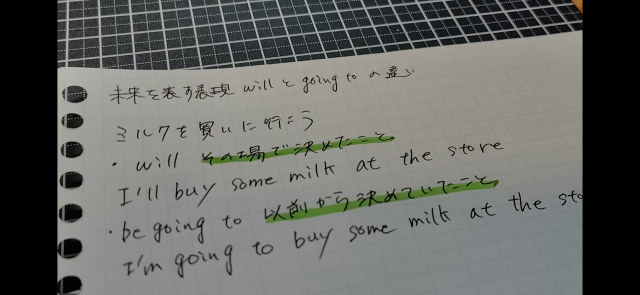 未来を表す表現 will と going to の違い
ミルクを買いに行こう
・will その場で決めたこと
I'll buy some milk at the store
・be going to 以前から決めていたこと
I'm going to buy some milk at the sto